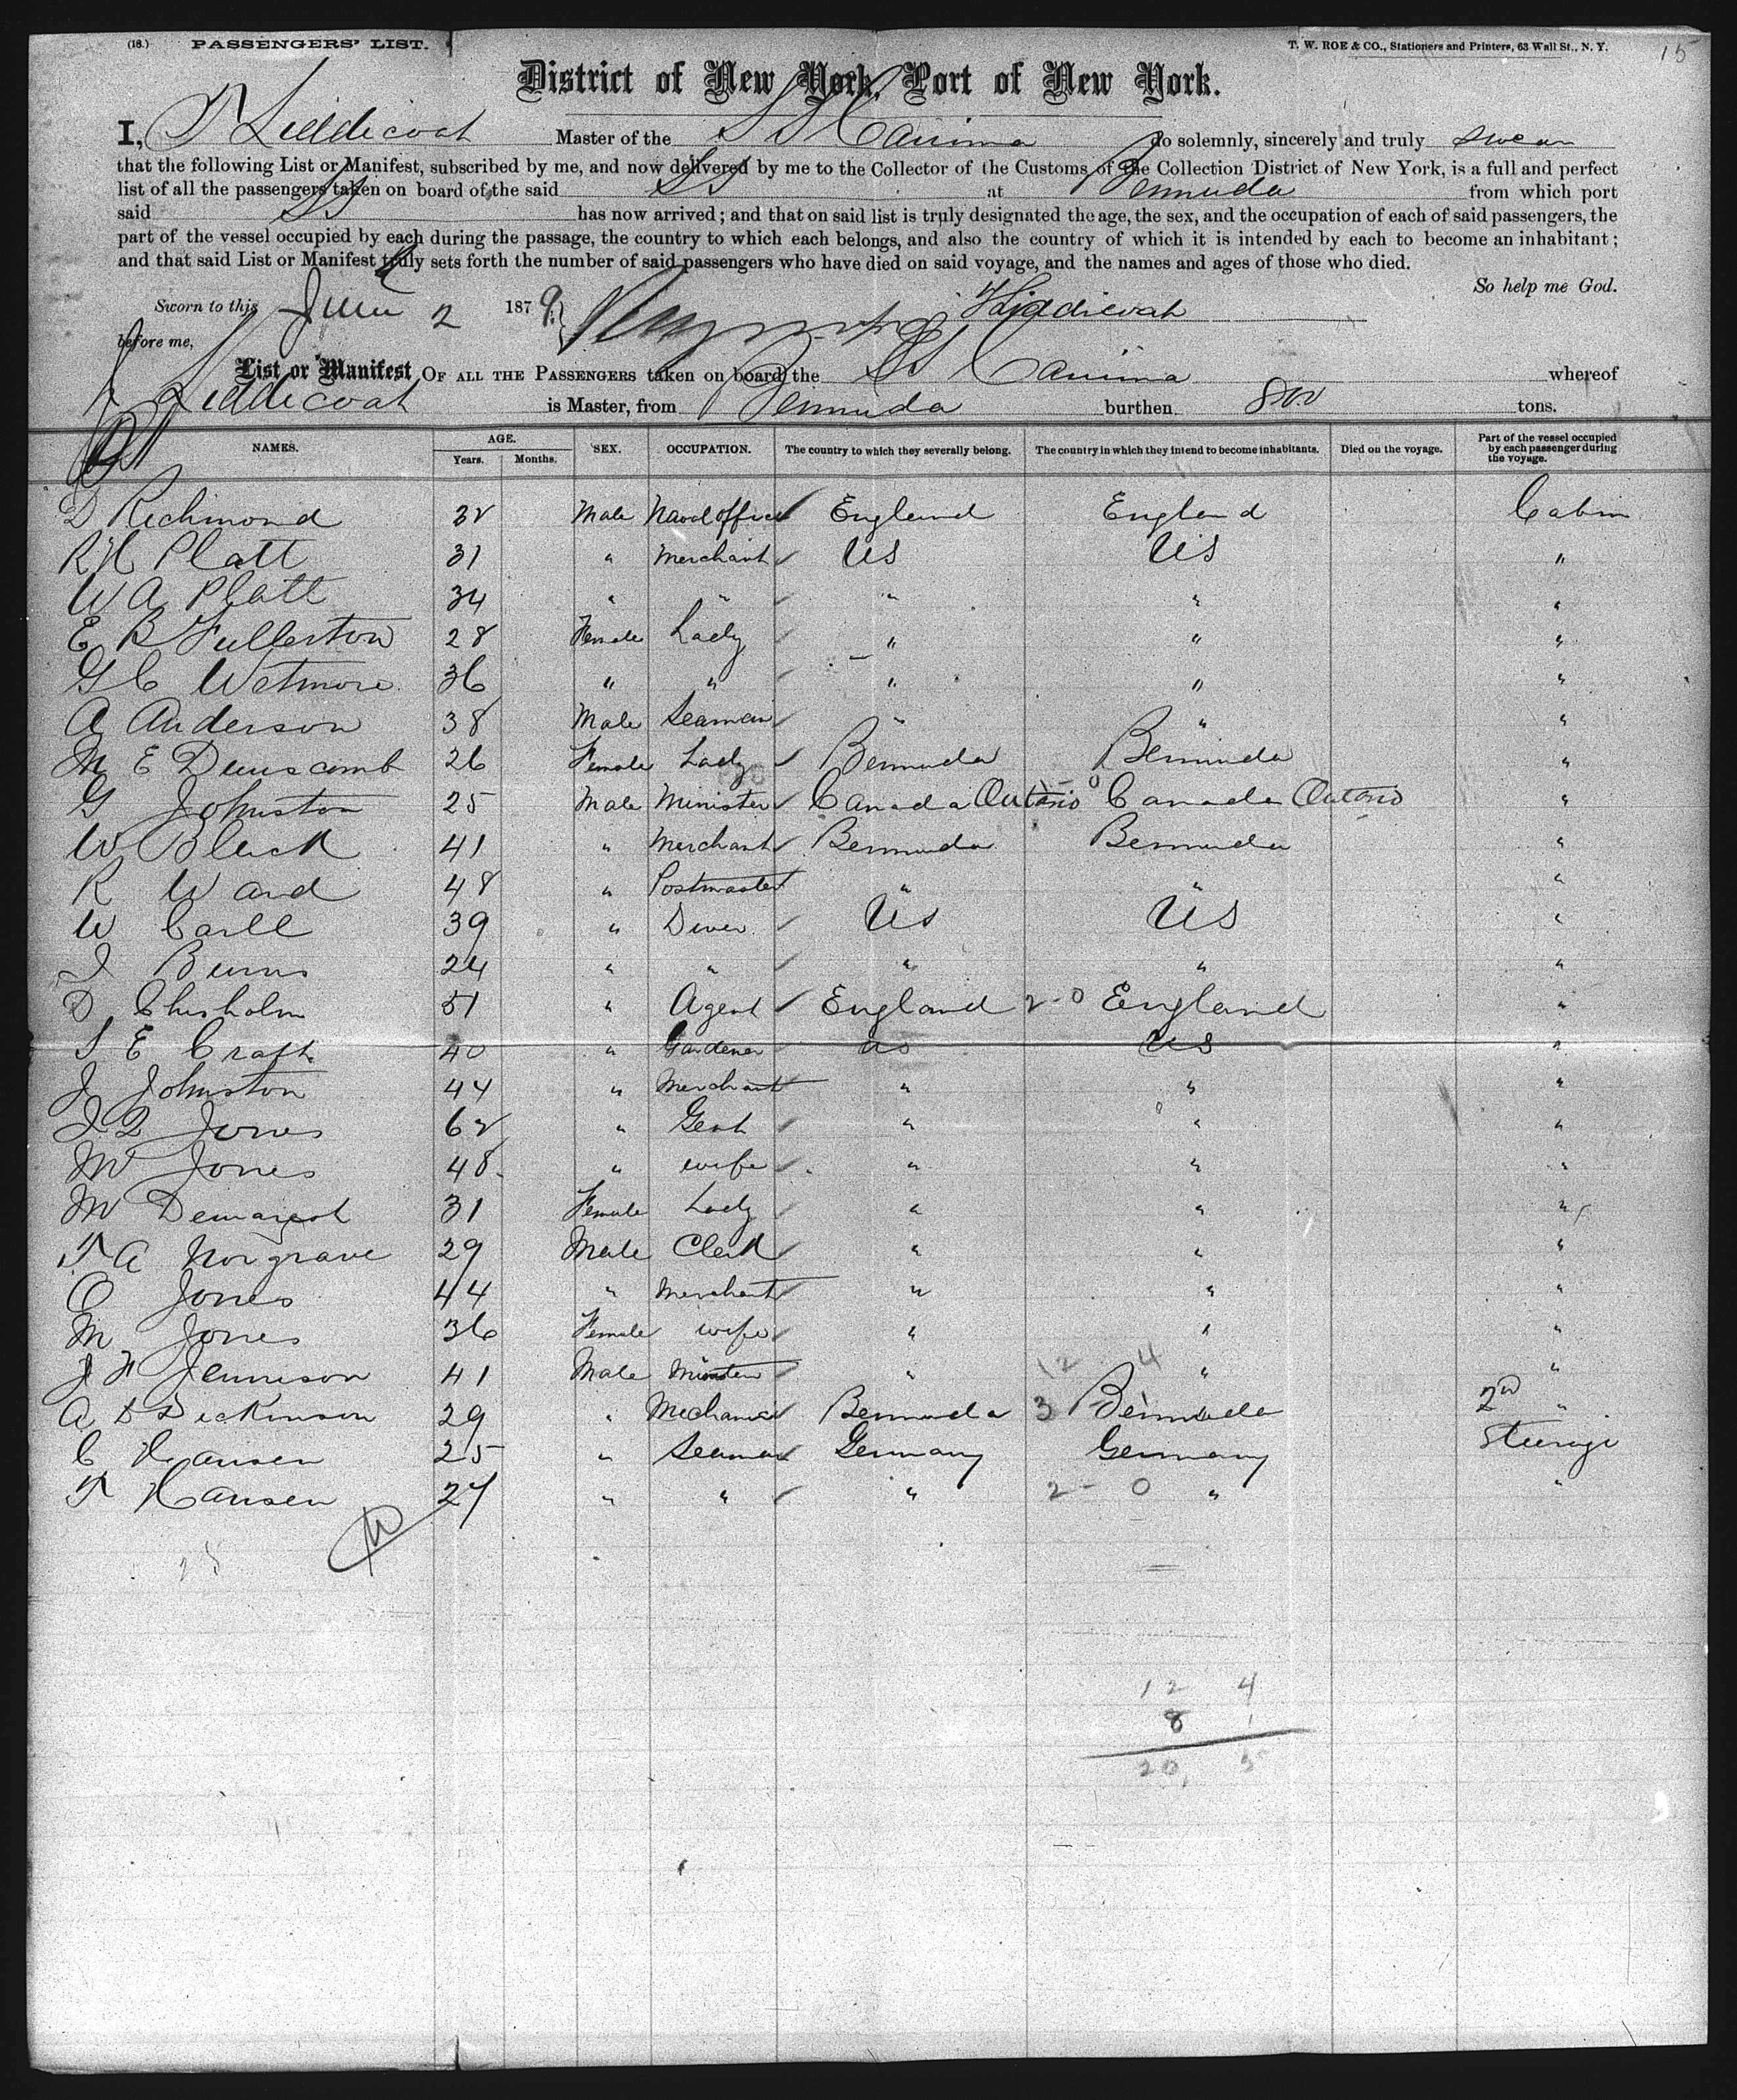 (18.) PASSENGERS' LIST. T. W. ROE & CO., Stationers and Printers, 63 Wall St., N. Y. 15
District of New York, Port of New York.
I, T Liddicoat Master of the SS Canima do solemnly, sincerely and truly swear
that the following List or Manifest, subscribed by me, and now delivered by me to the Collector of the Customs of the Collection District of New York, is a full and perfect
list of all the passengers taken on board of the said SS at Bermuda from which port
said SS has now arrived; and that on said list is truly designated the age, the sex, and the occupation of each of said passengers, the
part of the vessel occupied by each during the passage, the country to which each belongs, and also the country of which it is intended by each to become an inhabitant;
and that said List or Manifest truly sets forth the number of said passengers who have died on said voyage, and the names and ages of those who died.
So help me God.
Sworn to this June 2 1879 T Liddicoat
before me,
List or Manifest OF ALL THE PASSENGERS taken on board the SS Canima whereof
T Liddicoat is Master, from Bermuda burthen 800 tons.
NAMES. AGE. Years. Months. SEX. OCCUPATION. The country to which they severally belong. The country in which they intend to become inhabitants. Died on the voyage. Part of the vessel occupied by each passenger during the voyage.
D Richmond 32 Male Naval officer England England Cabin
R H Platt 31 " Merchant US US "
W A Platt 34 " " " " "
E B Fullerton 28 Female Lady " " "
G C Wetmore 36 " " " " "
A Anderson 38 Male Seaman " " "
M E Dunscomb 26 Female Lady Bermuda Bermuda "
G Johnston 25 Male Minister Canada Ontario Canada Ontario "
W Black 41 " Merchant Bermuda Bermuda "
R Ward 48 " Postmaster " " "
W Carll 39 " Diver US US "
J Burns 24 " " " " "
D Chisholm 51 " Agent England 2-0 England "
S E Craft 40 " Gardener US US "
J Johnston 44 " Merchant " " "
J Q Jones 62 " Gent " " "
M Jones 48 " wife " " "
M Demarest 31 Female Lady " " "
T A Norgrave 29 Male Clerk " " "
O Jones 44 " Merchant " " "
M Jones 36 Female wife " " "
J H Jennison 41 Male Minister " 12 4 " "
A D Dickinson 29 " Mechanic Bermuda 3 Bermuda 2nd "
C Hansen 25 " Seaman Germany Germany Steerage
T Hansen 27 " " " 2-0 " "
12 4
8 1
20 5